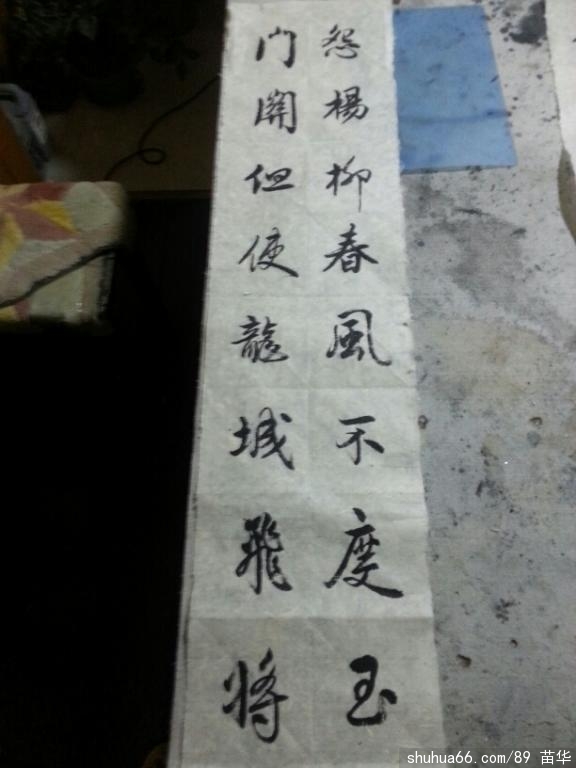 怨楊柳春風不度玉
門關但使龍城飛將
shuhua66.com/89 苗华